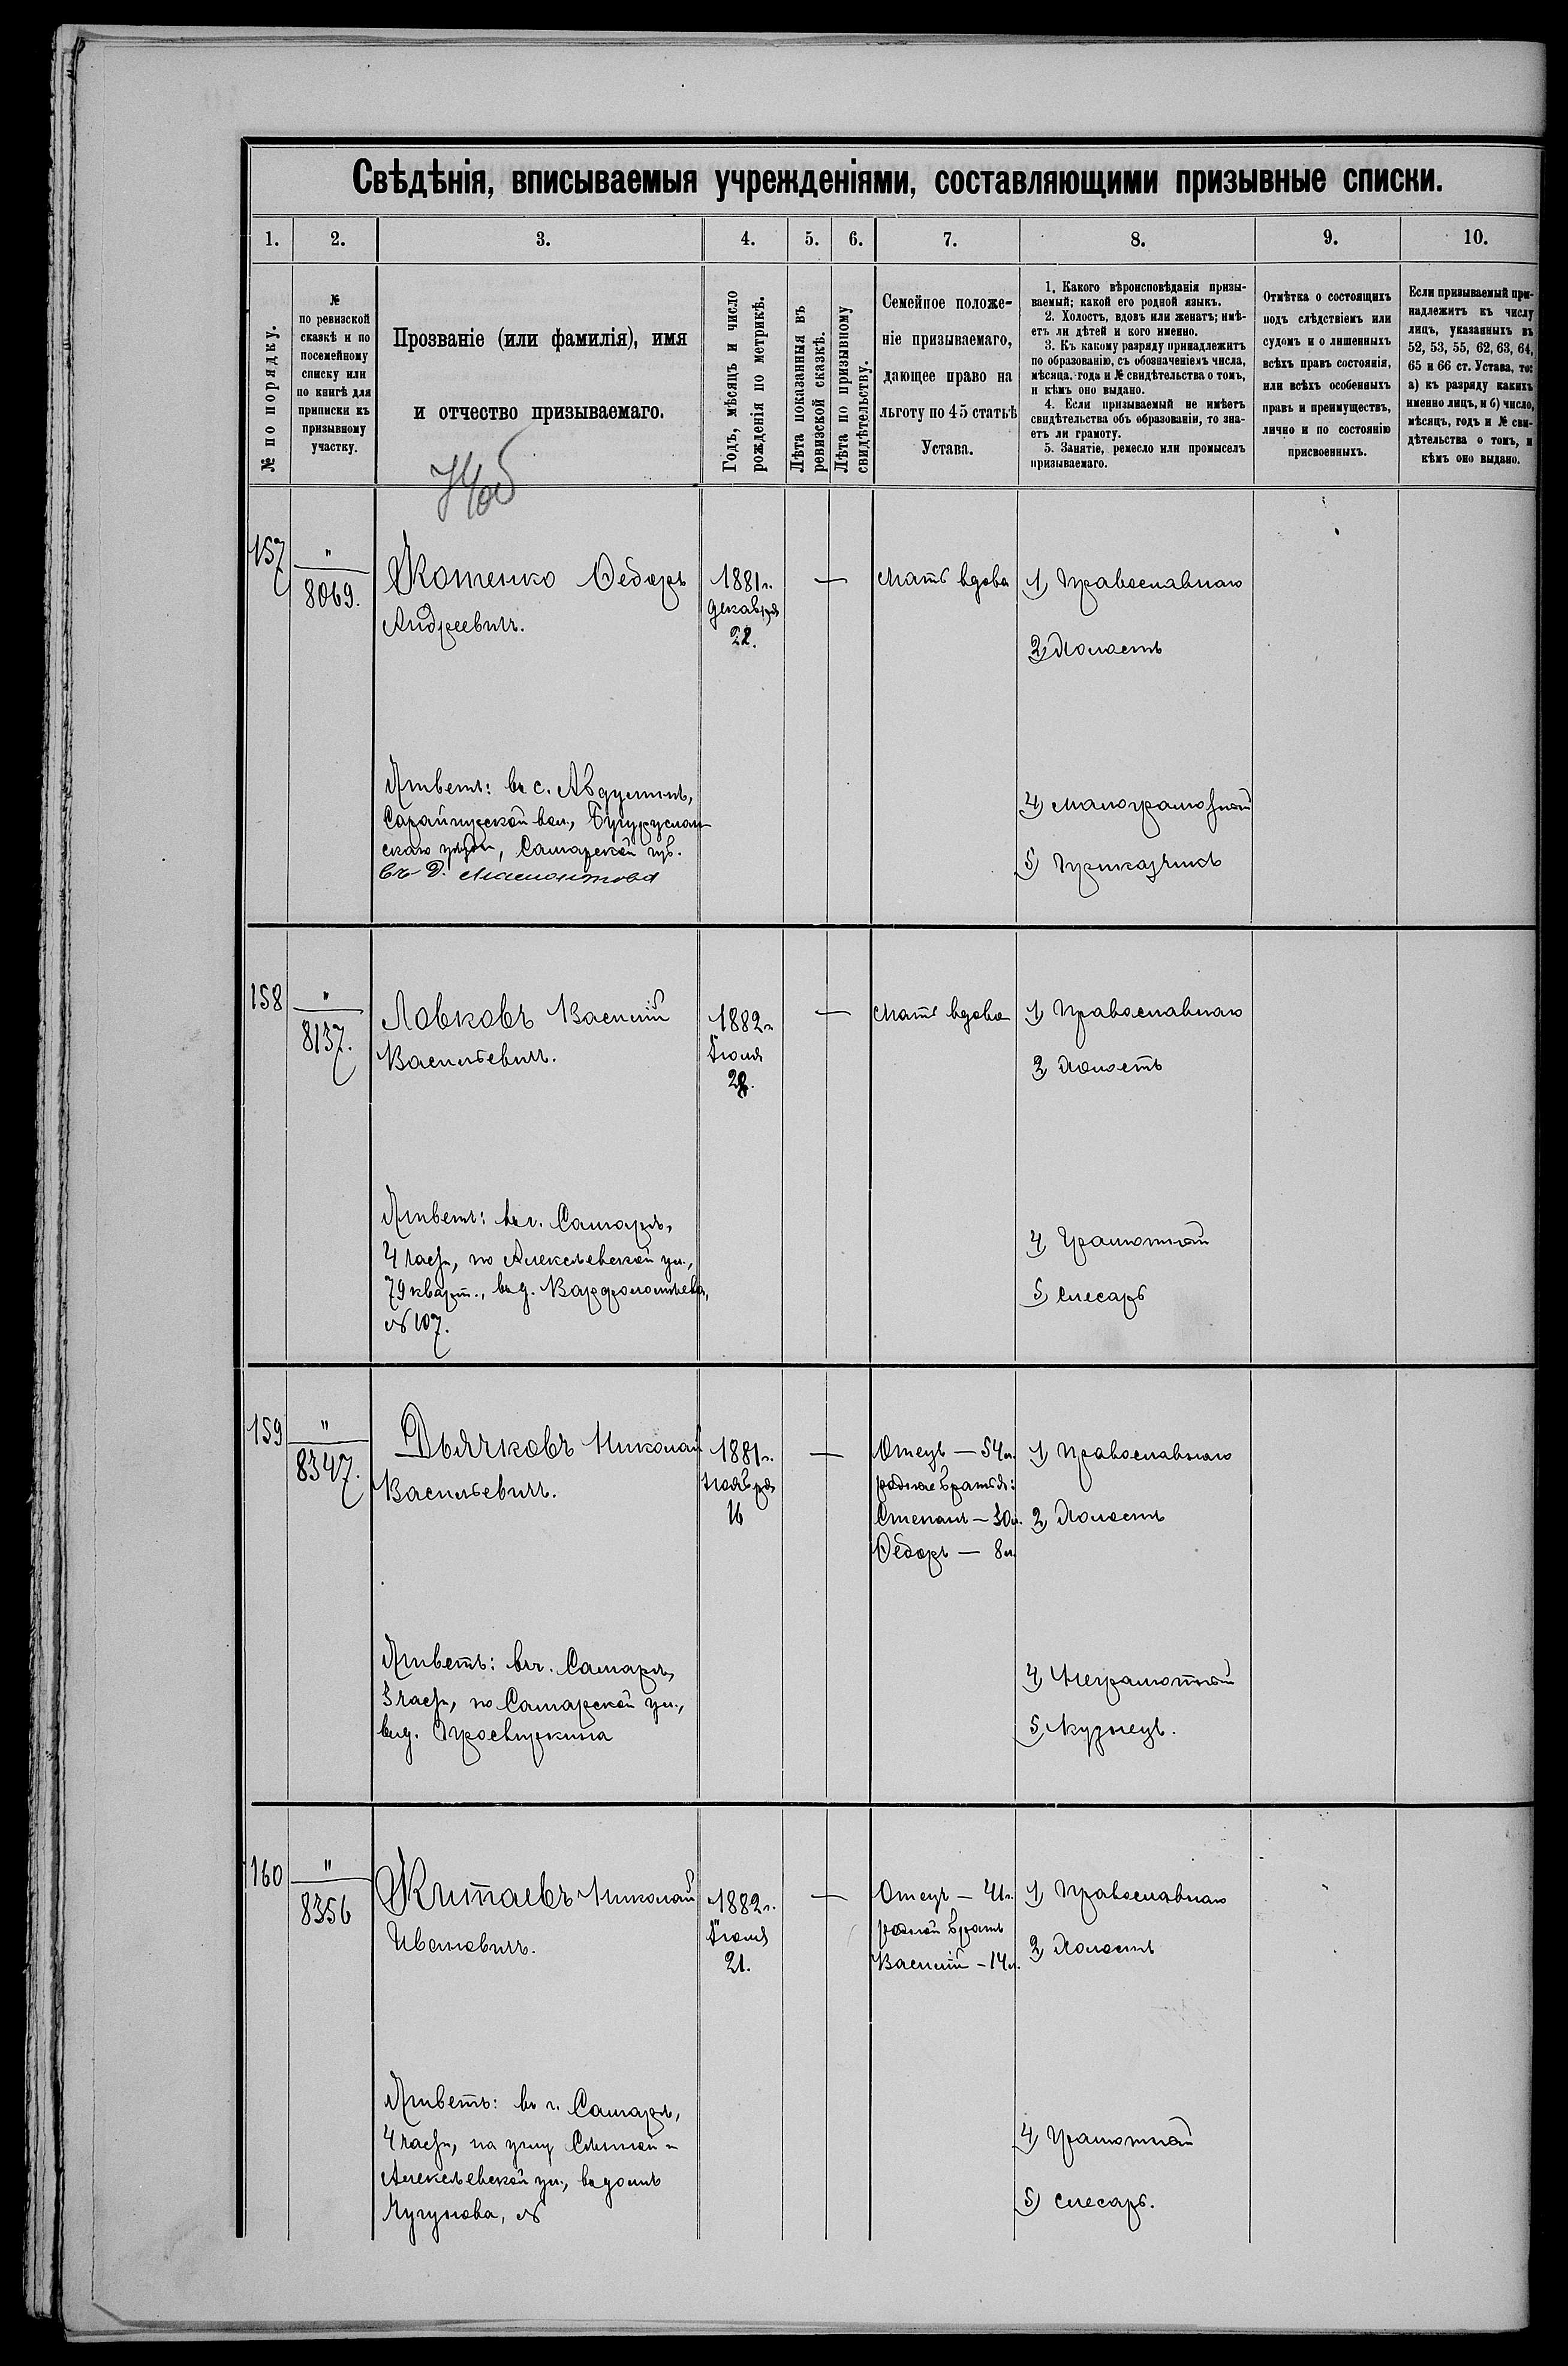 Свѣдѣнія, вписываемыя учрежденіями, составляющими призывные списки.
1. 2. 3. 4. 5. 6. 7. 8. 9. 10.
№ по порядку.
№
по ревизской
сказкѣ и по
посемейному
списку или
по книгѣ для
приписки къ
призывному
участку.
Прозваніе (или фамилія), имя
и отчество призываемаго.
Годъ, мѣсяцъ и число
рожденія по метрикѣ.
Лѣта показанныя въ
ревизской сказкѣ.
Лѣта по призывному
свидѣтельству.
Семейное положе-
ніе призываемаго,
дающее право на
льготу по 45 статьѣ
Устава.
1. Какого вѣроисповѣданія призы-
ваемый; какой его родной языкъ.
2. Холостъ, вдовъ или женатъ; имѣ-
етъ ли дѣтей и кого именно.
3. Къ какому разряду принадлежитъ
по образованію, съ обозначеніемъ числа,
мѣсяца, года и № свидѣтельства о томъ,
и кѣмъ оно выдано.
4. Если призываемый не имѣетъ
свидѣтельства объ образованіи, то зна-
етъ ли грамоту.
5. Занятіе, ремесло или промыселъ
призываемаго.
Отмѣтка о состоящихъ
подъ слѣдствіемъ или
судомъ и о лишенныхъ
всѣхъ правъ состоянія,
или всѣхъ особенныхъ
правъ и преимуществъ,
лично и по состоянію
присвоенныхъ.
Если призываемый при-
надлежитъ къ числу
лицъ, указанныхъ въ
52, 53, 55, 62, 63, 64,
65 и 66 ст. Устава, то:
а) къ разряду какихъ
именно лицъ, и б) число,
мѣсяцъ, годъ и № сви-
дѣтельства о томъ, и
кѣмъ оно выдано.
157
"
8069.
Котенко Федоръ
Андреевичъ.
1881 г.
Декабря
22.
—
Мать вдова
1) Православнаго
2) Холостъ
Живетъ: въ с. Абдулинѣ,
вол., Бугуруслан-
скаго уѣзда, Самарской губ.
въ д.
4) Малограмотный
5) Приказчикъ
158
"
8137.
Ловковъ Василій
Васильевичъ.
1882 г.
Іюля
28.
—
Мать вдова
1) Православнаго
2) Холостъ
Живетъ: въ г. Самарѣ,
4 части, по Алексѣевской ул.,
79 кварт., въ д. Варфоломѣева,
№ 107.
4) Грамотный
5) Слесарь
159
"
8347.
Дьячковъ Николай
Васильевичъ.
1881 г.
Ноября
16
—
Отецъ — 54 л.
родные братья:
Степанъ — 30 л.
Федоръ — 8 л.
1) Православнаго
2) Холостъ
Живетъ: въ г. Самарѣ,
3 части, по Самарской ул.,
въ д. Просвиркина
4) Неграмотный
5) Кузнецъ.
160
"
8356
Китаевъ Николай
Ивановичъ.
1882 г.
Іюля
21.
—
Отецъ — 41 г.
родной братъ
Василій — 14 л.
1) Православнаго
2) Холостъ
Живетъ: въ г. Самарѣ,
4 части, на углу Слѣпой и
Алексѣевской ул., въ домѣ
Чугунова, №
4) Грамотный
5) Слесарь.